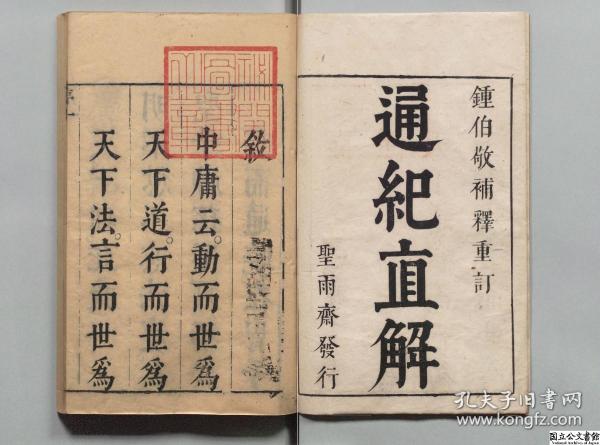 鍾伯敬補釋重訂
通紀直解
聖雨齋發行
敘
中庸云。動而世爲
天下道。行而世爲
天下法。言而世爲
序一
孔夫子旧书网
www.kongfz.com
国立公文書館
National Archives of Japan